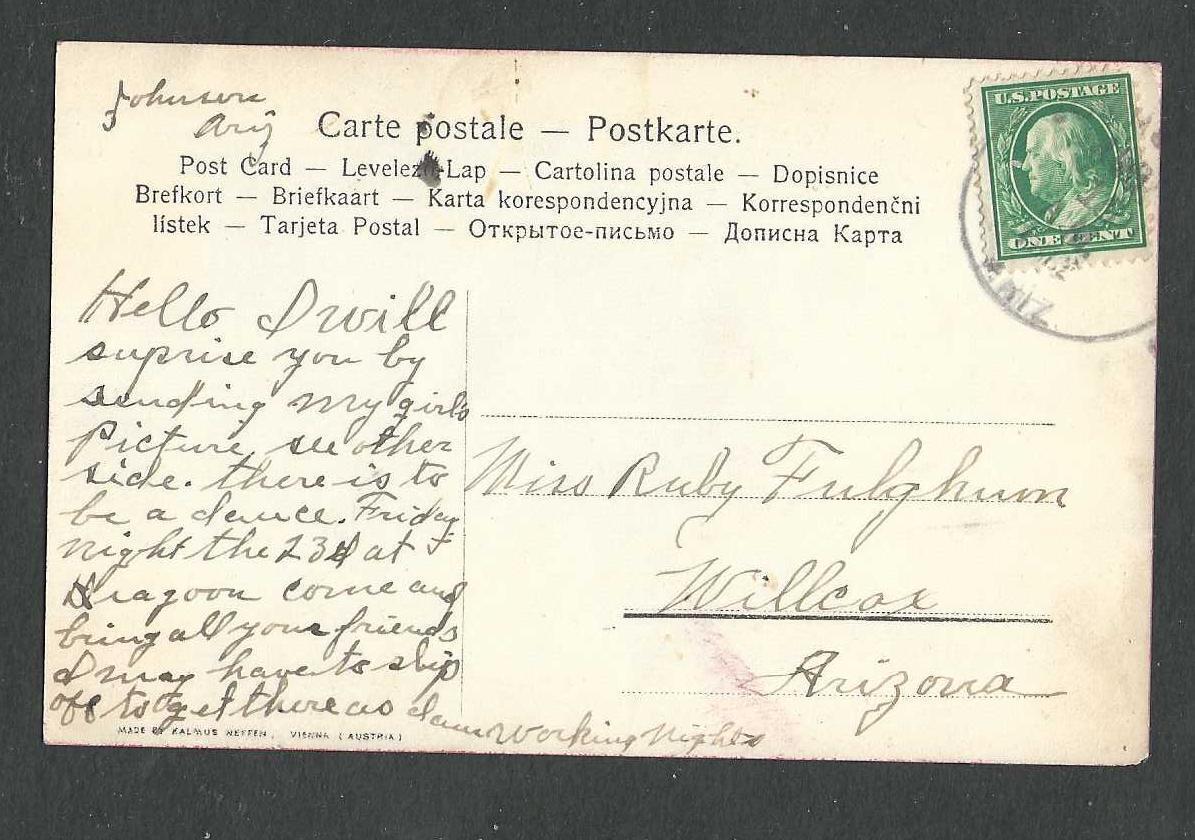 Johnson
Ariz
Carte postale — Postkarte.
Post Card — Levelező-Lap — Cartolina postale — Dopisnice
Brefkort — Briefkaart — Karta korespondencyjna — Korrespondenčni
lístek — Tarjeta Postal — Открытое-письмо — Дописна Карта
U.S. POSTAGE
ONE CENT
ARIZ.
Hello I will
suprise you by
sending my girls
Picture see other
side. there is to
be a dance. Friday
night the 23d at
Dragoon come and
bring all your friends
I may have to slip
off to get there as I am working nights
Miss Ruby Fulghum
Willcox
Arizona
MADE BY KALMUS NEFFEN, VIENNA (AUSTRIA)